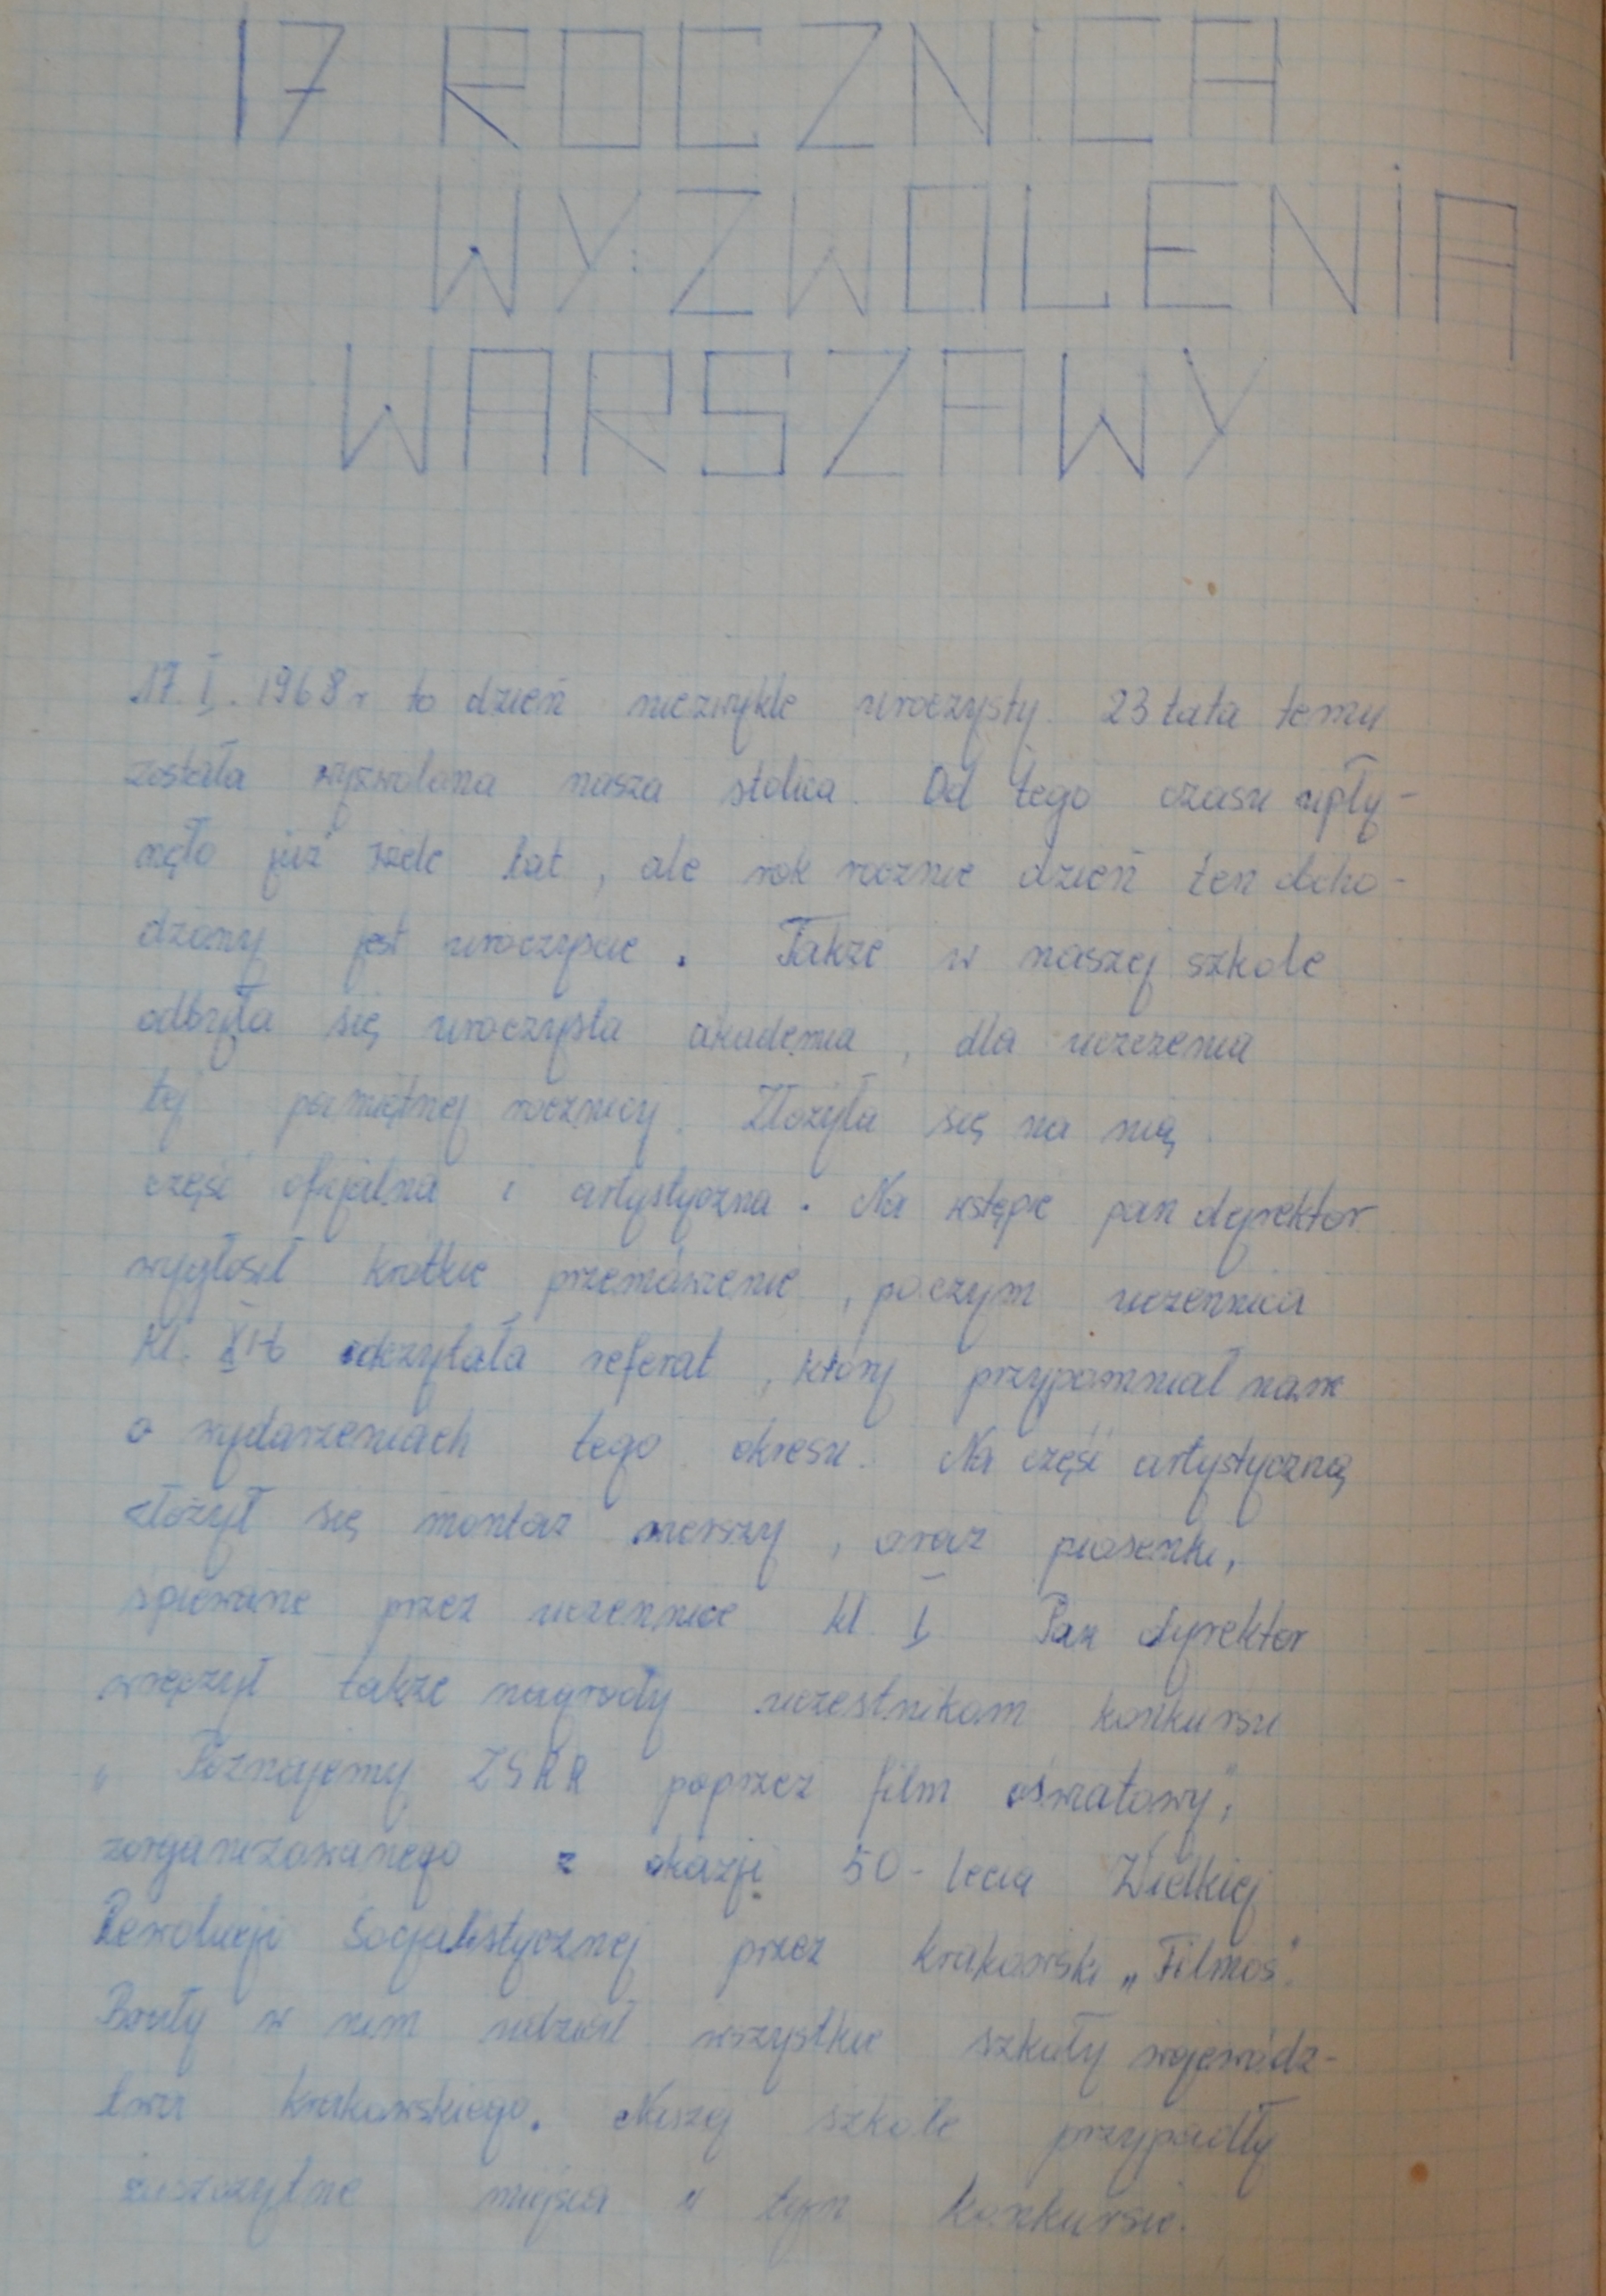 17 ROCZNiCA
WYZWOLENiA
WARSZAWY
17.I.1968r to dzień niezwykle uroczysty. 23 lata temu
została wyzwolona nasza stolica. Od tego czasu upły-
nęło już wiele lat, ale rok rocznie dzień ten obcho-
dzony jest uroczyście. Także w naszej szkole
odbyła się uroczysta akademia, dla uczczenia
tej pamiętnej rocznicy. Złożyła się na nią
część oficjalna i artystyczna. Na wstępie pan dyrektor
wygłosił krótkie przemówienie, poczym uczennica
kl. XIb odczytała referat, który przypomniał nam
o wydarzeniach tego okresu. Na część artystyczną
złożył się montaż wierszy, oraz piosenki,
śpiewane przez uczennice kl. I Pan dyrektor
wręczył także nagrody uczestnikom konkursu
„Poznajemy ZSRR poprzez film oświatowy”,
zorganizowanego z okazji 50-lecia Wielkiej
Rewolucji Socjalistycznej przez krakowski „Filmos”.
Brały w nim udział wszystkie szkoły wojewódz-
twa krakowskiego. Naszej szkole przypadły
zaszczytne miejsca w tym konkursie.